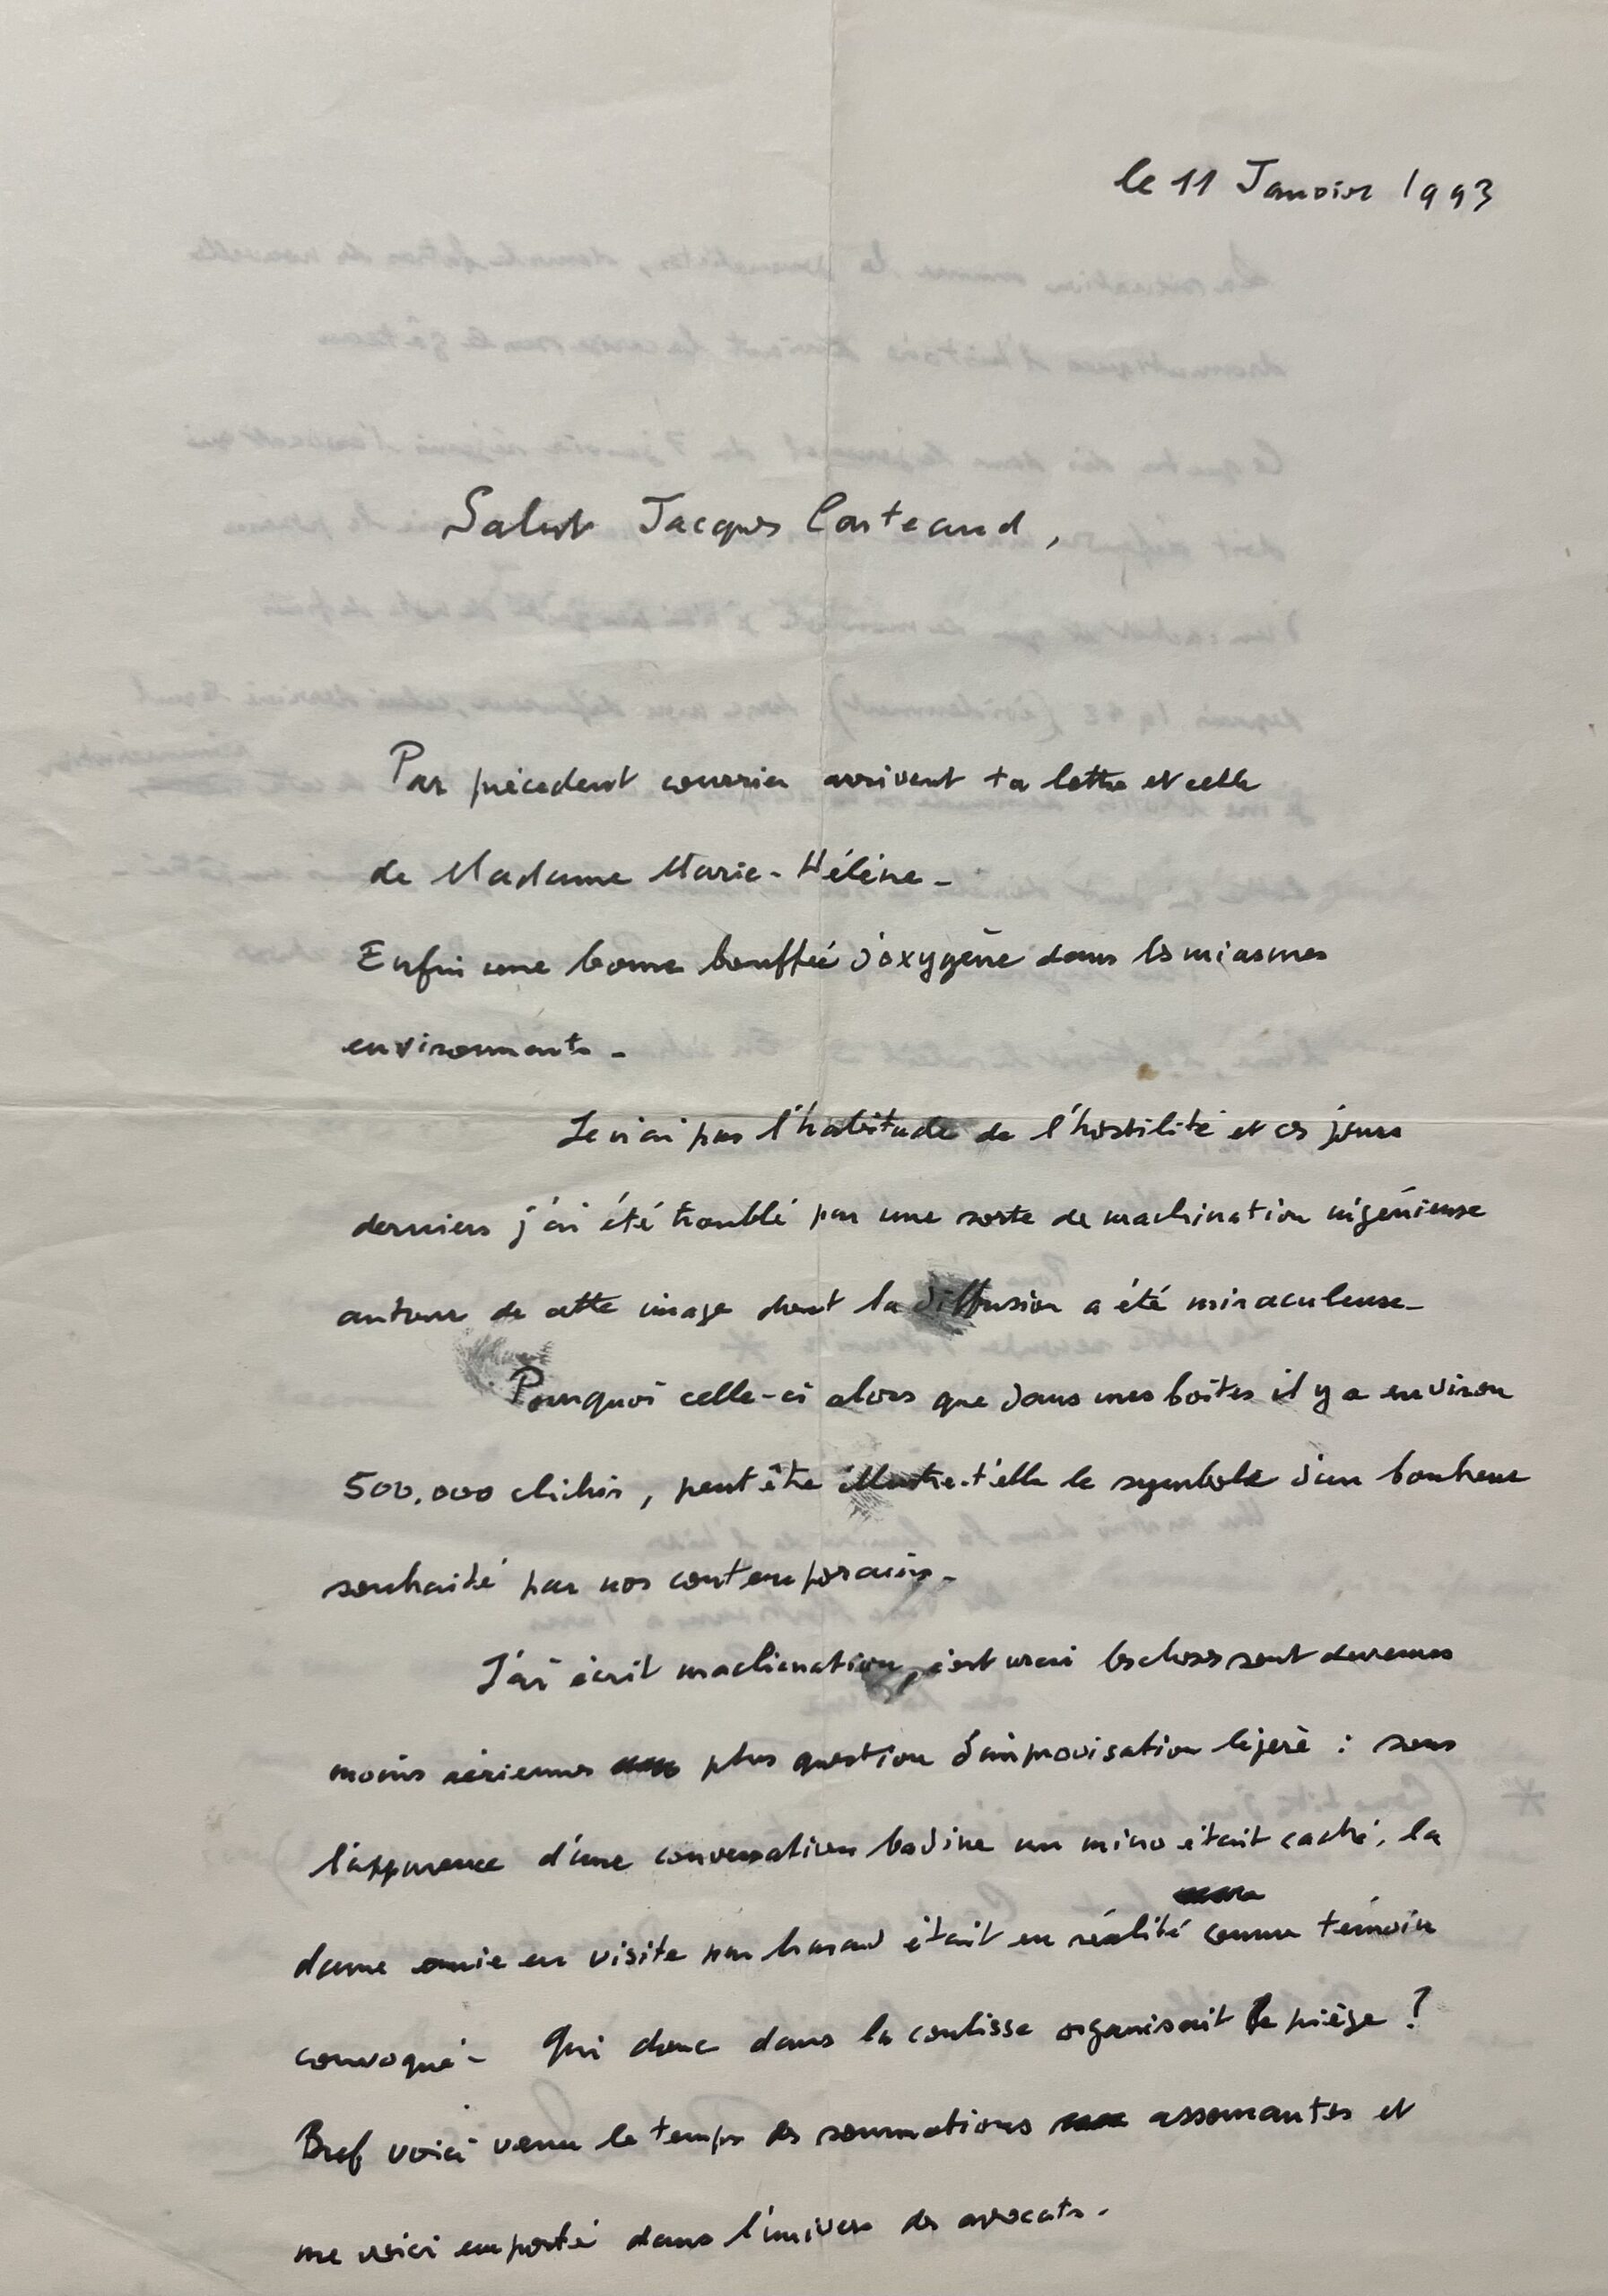 le 11 Janvier 1993
Salut Jacques Carteaud,
Par précédent courrier arrivent ta lettre et celle
de Madame Marie-Hélène -
Enfin une bonne bouffée d'oxygène dans les miasmes
environnants -
Je n'ai pas l'habitude de l'hostilité et ces jours
derniers j'ai été troublé par une sorte de machination ingénieuse
autour de cette image dont la diffusion a été miraculeuse -
Pourquoi celle-ci alors que dans mes boites il y a environ
500.000 clichés, peut être illustre-t'elle le symbole d'un bonheur
souhaité par nos contemporains -
J'ai écrit machination, c'est vrai les choses sont devenues
moins aériennes plus question d'improvisation légère : sous
l'apparence d'une conversation badine un micro était caché, la
dame amie en visite par hasard était en réalité comme témoin
convoqué - Qui donc dans la coulisse organisait le piège ?
Bref voici venu le temps des sommations assomantes et
me voici emporté dans l'univers des avocats -